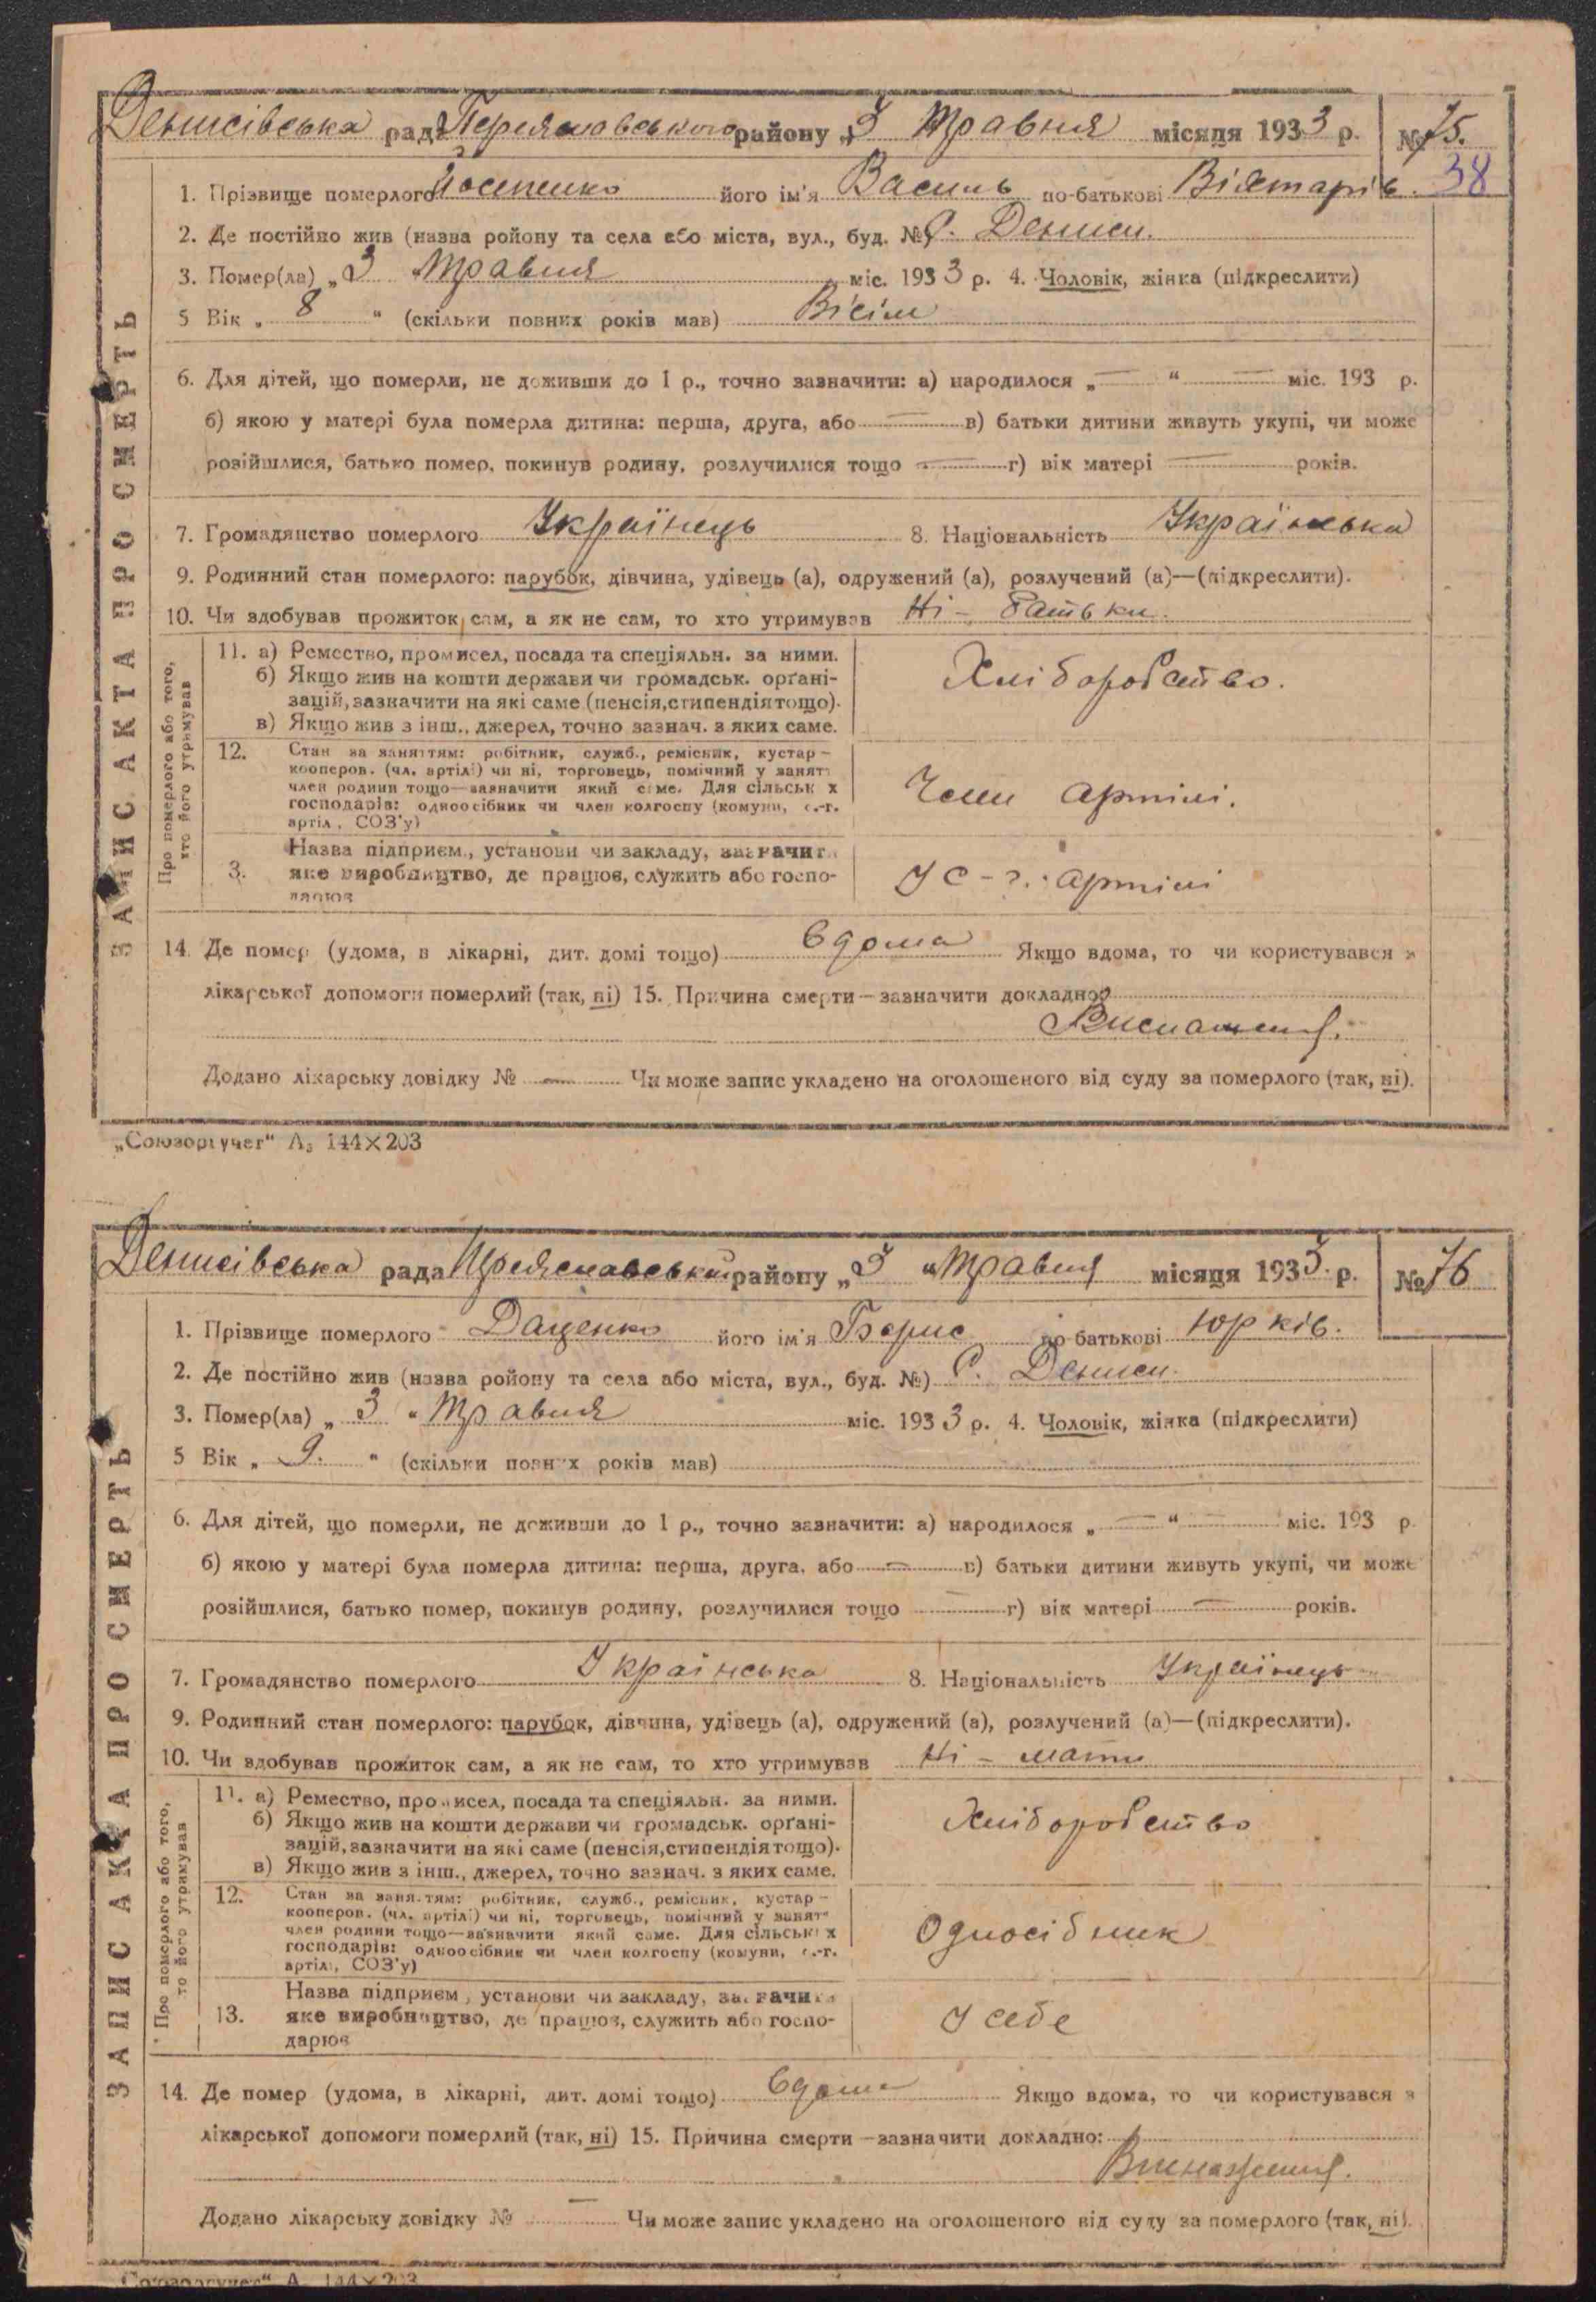 Денисівська рада Переяславського району „3 Травня місяця 1933 р. № 75.
38
1. Прізвище померлого Йосипенко його ім'я Василь по-батькові
2. Де постійно жив (назва ройону та села або міста, вул., буд. № С. Дениси.
3. Помер(ла) „ 3 Травня міс. 1933 р. 4. Чоловік, жінка (підкреслити)
5 Вік „ 8 “ (скільки повних років мав) Вісім
6. Для дітей, що померли, не доживши до 1 р., точно зазначити: а) народилося „ — “ — міс. 193 р.
б) якою у матері була померла дитина: перша, друга, або — в) батьки дитини живуть укупі, чи може
розійшлися, батько помер, покинув родину, розлучилися тощо — г) вік матері — років.
7. Громадянство померлого Українець 8. Національність Українська
9. Родинний стан померлого: парубок, дівчина, удівець (а), одружений (а), розлучений (а)—(підкреслити).
10. Чи здобував прожиток сам, а як не сам, то хто утримував Ні - батьки.
ЗАПИС АКТА ПРО СМЕРТЬ
Про померлого або того,
хто його утримував
11. а) Ремество, промисел, посада та спеціяльн. за ними.
б) Якщо жив на кошти держави чи громадськ. орґані-
зацій, зазначити на які саме (пенсія, стипендія тощо).
в) Якщо жив з інш., джерел, точно зазнач. з яких саме.
Хліборобство.
12. Стан за заняттям: робітник, служб., ремісник, кустар –
кооперов. (чл. артілі) чи ні, торговець, помічний у занятт
член родини тощо—зазначити який саме. Для сільськ х
господарів: одноосібник чи член колгоспу (комуни, с.-г.
артіл, СОЗ'у)
Член артілі.
Назва підприєм., установи чи закладу, зазначити
3. яке виробництво, де працює, служить або госпо-
дарює
У с-г. артілі
14. Де помер (удома, в лікарні, дит. домі тощо) вдома Якщо вдома, то чи користувався з
лікарської допомоги померлий (так, ні) 15. Причина смерти—зазначити докладно:
Виснаження.
Додано лікарську довідку № — Чи може запис укладено на оголошеного від суду за померлого (так, ні).
„Союзоргучет“ А₅ 144×203
Денисівська рада Переяславський району „3 “ Травня місяця 1933 р. № 76
1. Прізвище померлого Даценко його ім'я Борис по-батькові Юрків.
2. Де постійно жив (назва ройону та села або міста, вул., буд. №) С. Дениси.
3. Помер(ла) „ 3 “ Травня міс. 1933 р. 4. Чоловік, жінка (підкреслити)
5 Вік „ 9. “ (скільки повних років мав)
6. Для дітей, що померли, не доживши до 1 р., точно зазначити: а) народилося „ — “ — міс. 193 р.
б) якою у матері була померла дитина: перша, друга, або — в) батьки дитини живуть укупі, чи може
розійшлися, батько помер, покинув родину, розлучилися тощо — г) вік матері — років.
7. Громадянство померлого Українська 8. Національність Українець
9. Родинний стан померлого: парубок, дівчина, удівець (а), одружений (а), розлучений (а)—(підкреслити).
10. Чи здобував прожиток сам, а як не сам, то хто утримував Ні - мати
ЗАПИС АКТА ПРО СМЕРТЬ
Про померлого або того,
то його утримував
11. а) Ремество, промисел, посада та спеціяльн. за ними.
б) Якщо жив на кошти держави чи громадськ. орґані-
зацій, зазначити на які саме (пенсія, стипендія тощо).
в) Якщо жив з інш., джерел, точно зазнач. з яких саме.
Хліборобство
12. Стан за занят.тям: робітник, служб., ремісник, кустар –
кооперов. (чл. артілі) чи ні, торговець, помічний у занятт
член родини тощо—зазначити який саме. Для сільськ х
господарів: одноосібник чи член колгоспу (комуни, с.-г.
артіл, СОЗ'у)
Односібник
Назва підприєм., установи чи закладу, зазначити
13. яке виробництво, де працює, служить або госпо-
дарює
У себе
14. Де помер (удома, в лікарні, дит. домі тощо) вдома Якщо вдома, то чи користувався з
лікарської допомоги померлий (так, ні) 15. Причина смерти—зазначити докладно:
Виснаження.
Додано лікарську довідку № — Чи може запис укладено на оголошеного від суду за померлого (так, ні).
„Союзоргучет“ А₅ 144×203